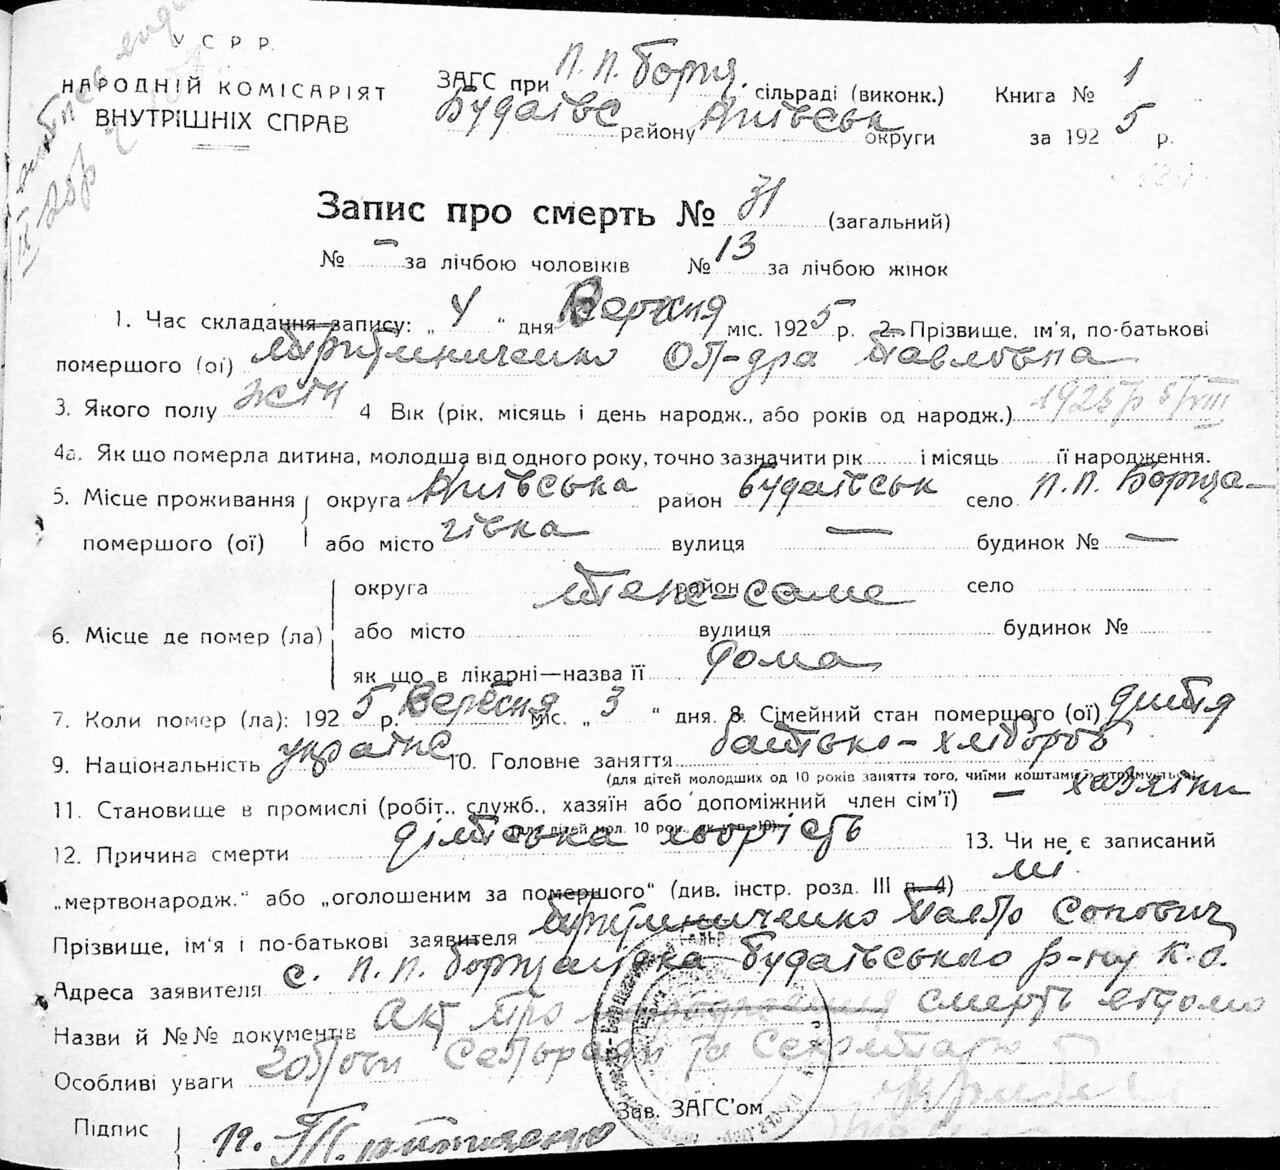 У С Р Р.
НАРОДНІЙ КОМІСАРІЯТ
ВНУТРІШНІХ СПРАВ
ЗАГС при П. П. Борщ. сільраді (виконк.)
Будаївс району Київськ округи
Книга № 1
за 1925 р.
Запис про смерть № 31 (загальний)
№ — за лічбою чоловіків № 13 за лічбою жінок
1. Час складання запису: „ 4 “ дня Вересня міс. 1925 р. 2. Прізвище, ім'я, по-батькові
помершого (ої) Павловна
3. Якого полу жін 4 Вік (рік, місяць і день народж., або років од народж.) 1925 р 5/VIII
4а. Як що померла дитина, молодша від одного року, точно зазначити рік і місяць її народження.
5. Місце проживання округа Київська район Будаївськ село П.П. Борща-
помершого (ої) або місто гівка вулиця — будинок № —
округа район село
теж-саме
6. Місце де помер (ла) або місто вулиця будинок №
як що в лікарні—назва її дома
7. Коли помер (ла): 1925 р. Вересня міс. „ 3 “ дня. 8. Сімейний стан помершого (ої) дитя
9. Національність україн 10. Головне заняття батько - хлібороб
(для дітей молодших од 10 років заняття того, чиїми коштами їх утримується)
11. Становище в промислі (робіт., служб., хазяїн або допоміжний член сім'ї) — хазяїн
(для дітей мол. 10 рок., як у п. 10)
12. Причина смерти дітська хворість 13. Чи не є записаний
„мертвонародж.“ або „оголошеним за помершого“ (див. інстр. розд. III п. 4) ні
Прізвище, ім'я і по-батькові заявителя Павло
Адреса заявителя с. П. П. Борщагівка Будаївського р-ну К.О.
Назви й №№ документів Акт про смерть відомо
Особливі уваги голови Сельради та Секретарю
Зав. ЗАГС'ом
Підпис